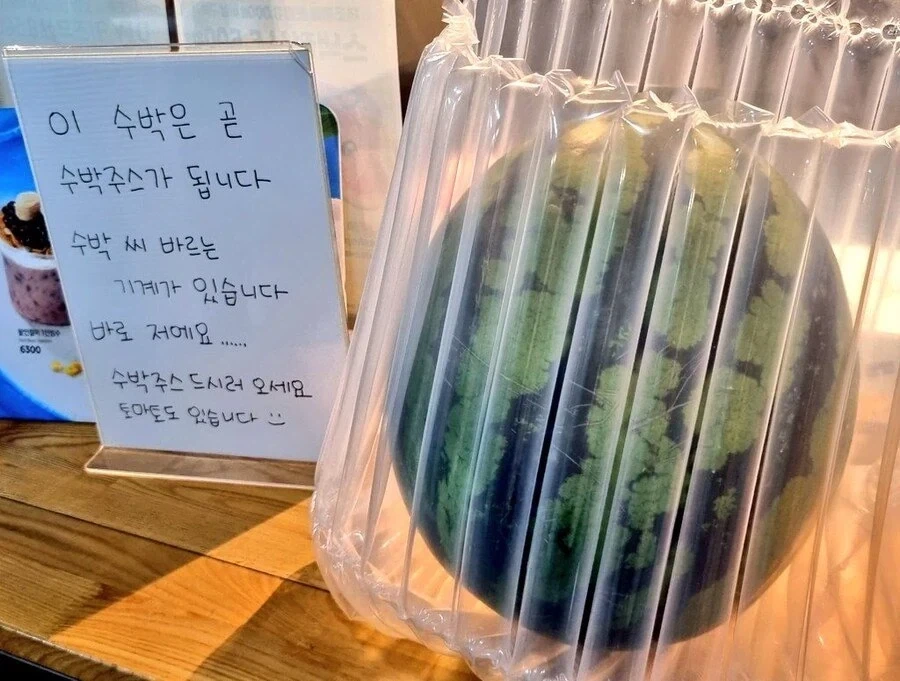 이 수박은 곧
수박주스가 됩니다
수박 씨 바르는
기계가 있습니다
바로 저예요.....
수박주스 드시러 오세요
토마토도 있습니다 :)
6300